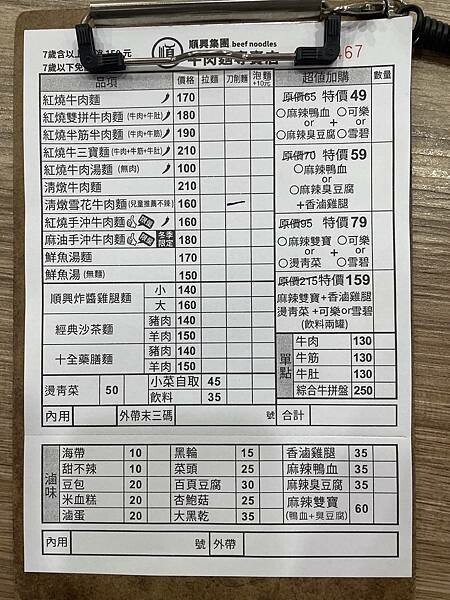 順興集團 beef noodles
牛肉麵專賣店
7歲含以上 150元
7歲以下免 67
品項 價格 拉麵 刀削麵 泡麵+10元
紅燒牛肉麵 170
紅燒雙拼牛肉麵 (牛肉+牛肚) 180
紅燒牛筋半肉麵 (牛肉+牛筋) 190
紅燒牛三寶麵 (牛肉+牛筋+牛肚) 210
紅燒牛肉湯麵 (無肉) 100
清燉牛肉麵 210
清燉雪花牛肉麵 (兒童推薦不辣) 160
紅燒手沖牛肉麵 160
麻油手沖牛肉麵 冬季限定 180
鮮魚湯麵 170
鮮魚湯 (無麵) 150
順興炸醬雞腿麵 小 140
大 160
經典沙茶麵 豬肉 140
羊肉 150
十全藥膳麵 豬肉 140
羊肉 150
燙青菜 50 小菜自取 45
飲料 35
超值加購 數量
原價65 特價49
○麻辣鴨血 ○可樂
or + or
○麻辣臭豆腐 ○雪碧
原價70 特價59
○麻辣鴨血
or
○麻辣臭豆腐
+香滷雞腿
原價95 特價79
○麻辣雙寶 ○可樂
or + or
○燙青菜 ○雪碧
原價215 特價159
麻辣雙寶+香滷雞腿
燙青菜+可樂or雪碧
(飲料兩罐)
單點 牛肉 130
牛筋 130
牛肚 130
綜合牛拼盤 250
內用 外帶末三碼 號 合計
滷味
海帶 10 黑輪 15 香滷雞腿 35
甜不辣 10 菜頭 25 麻辣鴨血 35
豆包 20 百頁豆腐 30 麻辣臭豆腐 35
米血糕 20 杏鮑菇 25 麻辣雙寶 60
滷蛋 20 大黑乾 35 (鴨血+臭豆腐)
內用 號 外帶